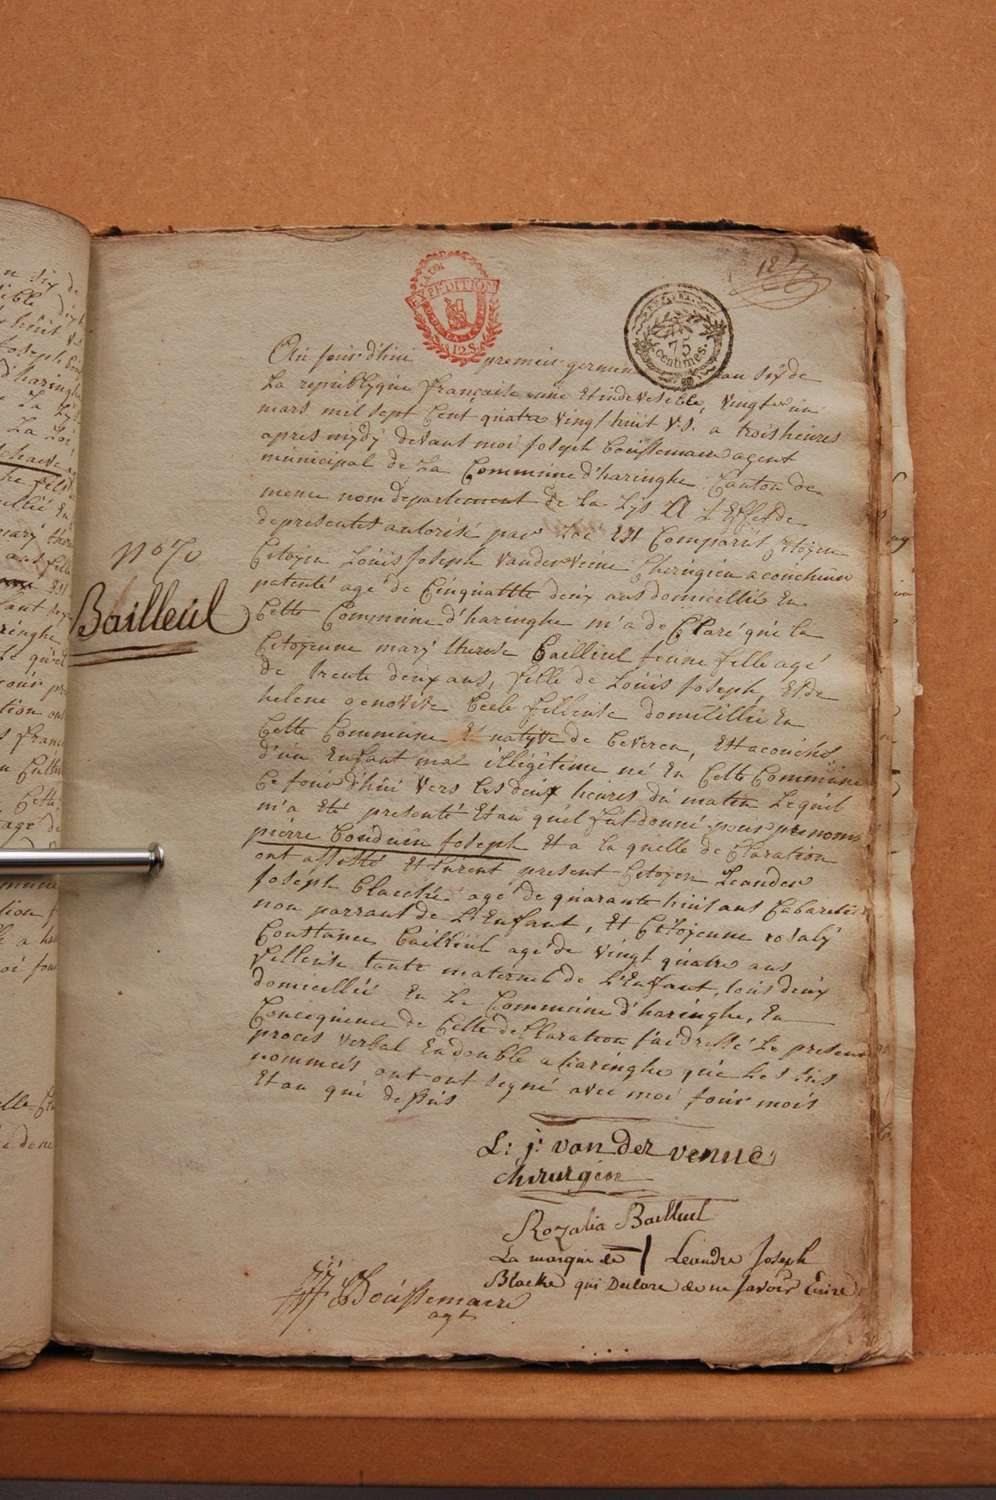 18
EXPEDITION
75
centimes.
Au jour d'hui premier germin au six de
la republique française une et indevesible, vingt un
mars mil sept cent quatre vingt huit v.s. a trois heures
apres midy devant moi joseph Boússemaere agent
municipal de la Commune d'haringhe Canton de
meme nom departement de la Lys a l'Effet de
presentes autorisé par est Comparus
Citoyen Louis joseph vandervenne Chirugien
patenté agé de Cinquante deux ans domicillié En
Cette Commune d'haringhe m'a de Claré que la
Citoyenne mary therese Bailleul jeune fille agé
de trente deux ans, fille de Louis joseph, et de
helene genovive fileuse domicillié En
Cette Commune Et natyve de beveren, est acouché
d'un Enfant mal illegitime né En Cette Commune
Ce jour d'hui vers les deux heures du matin lequel
m'a eté presenté et au quel fut donné pour prenoms
pierre Bouduin joseph et a la quelle de Claration
ont assisté et furent present Citoyen Leander
joseph Blaeckе agé de quarante huit ans Cabaretier
non parrant de l'Enfant, et Citoyenne rosaly
Constance Bailleul age de vingt quatre ans
fileuse tante maternel de l'Enfant, tous deux
domicillié En la Commune d'haringhe, En
Concequence de Cette de Claration j'ai dressé le present
proces verbal En double a haringhe que les sus
nommés ont ont segné avec moi jour mois
et an que dessus
N° 70
Bailleul
L: j: van der venne
chirurgien
Rozalia Bailleul
La marque de Leandre Joseph
Blacke qui Declare de ne savoir Ecrire
JJ Boússemaere
agt